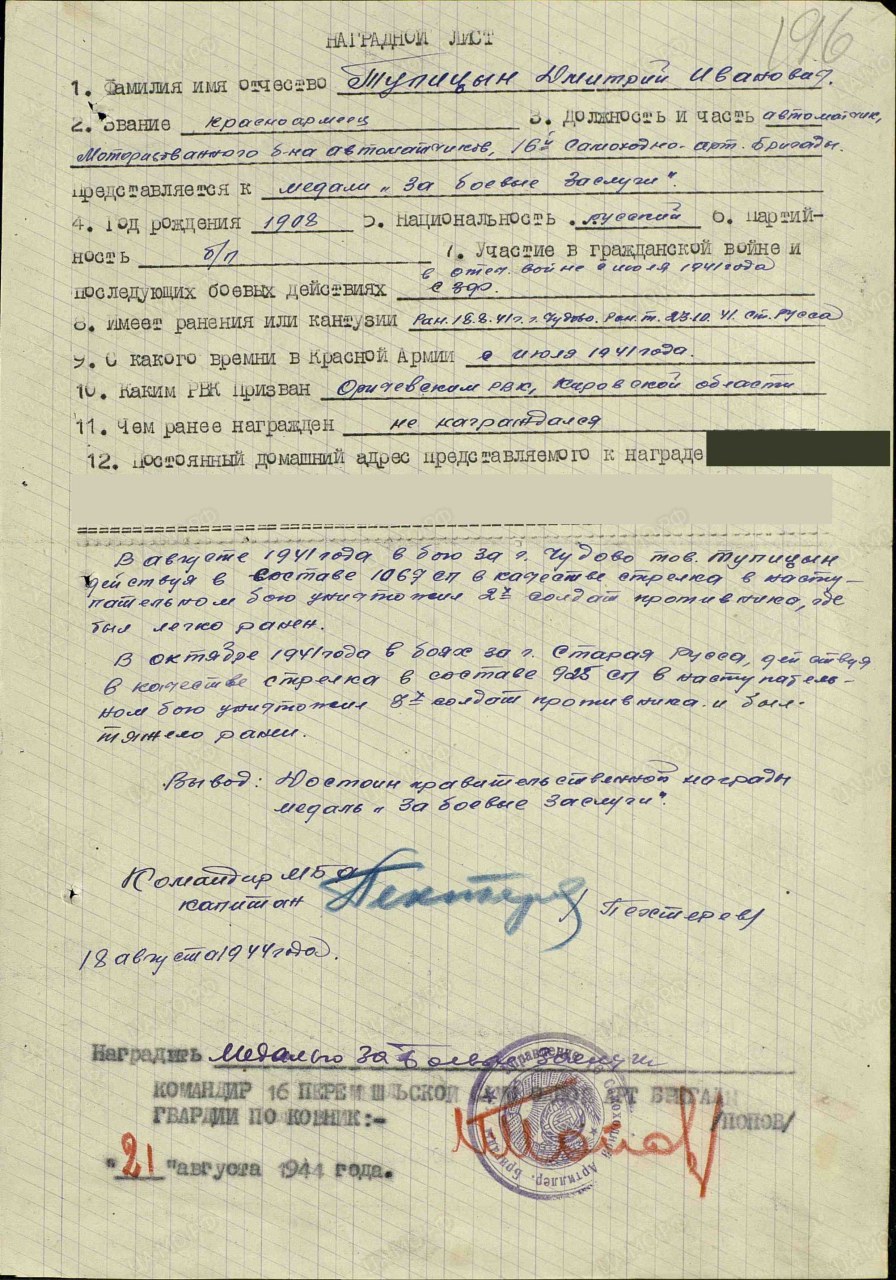 196
НАГРАДНОЙ ЛИСТ
1. Фамилия имя отчество Тупицын Дмитрий Иванович.
2. Звание красноармеец 3. Должность и часть автоматчик,
Моторизованного б-на автоматчиков, 16й Самоходно-арт. бригады.
Представляется к медали „За боевые заслуги".
4. Год рождения 1908 5. Национальность русский 6. Партий-
ность б/п 7. Участие в гражданской войне и
в отеч. войне с июля 1941 года
последующих боевых действиях С ЗФ.
8. Имеет ранения или кантузии Ран. 18.8.41 г. г. Чудово. Ран. т. 23.10.41. Ст. Русса
9. С какого времни в Красной Армии с июля 1941 года.
10. Каким РВК Призван Оричевским РВК, Кировской области
11. Чем ранее награжден не награждался
12. Постоянный домашний адрес представляемого к награде
В августе 1941 года в бою за г. Чудово тов. Тупицын
действуя в составе 1067 сп в качестве стрелка в насту-
пательном бою уничтожил 2х солдат противника, где
был легко ранен.
В октябре 1941 года в боях за г. Старая Русса, действуя
в качестве стрелка в составе 925 сп в наступатель-
ном бою уничтожил 3х солдат противника и был
тяжело ранен.
Вывод: Достоин правительственной награды
медаль „За боевые заслуги".
Командир МБА
капитан Пехтерев /Пехтерев/
18 августа 1944 года.
Наградить Медалью За Боевые Заслуги
КОМАНДИР 16 ПЕРЕМЫШЛЬСКОЙ САМОХОДНОЙ АРТ БРИГАДЫ
ГВАРДИИ ПОЛКОВНИК:- Попов /ПОПОВ/
"21" августа 1944 года.
Управление 16 Самоходной Артиллер. Бригады